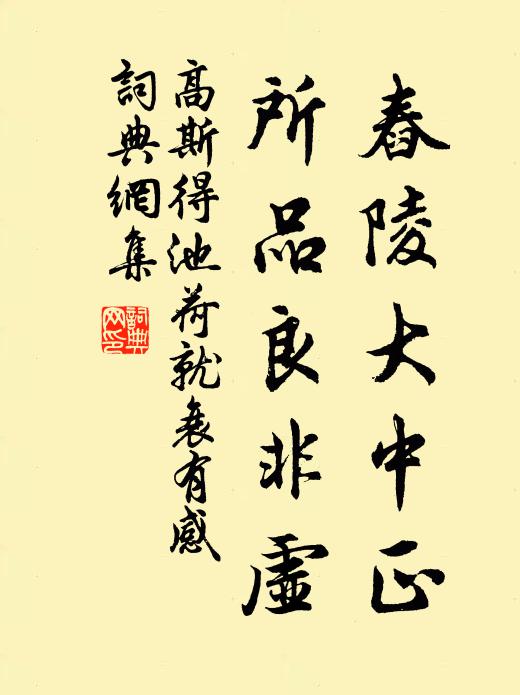 舂陵大中正
所品良非虛
高斯得池荷就衰有感
詞典網集
詞典
网印